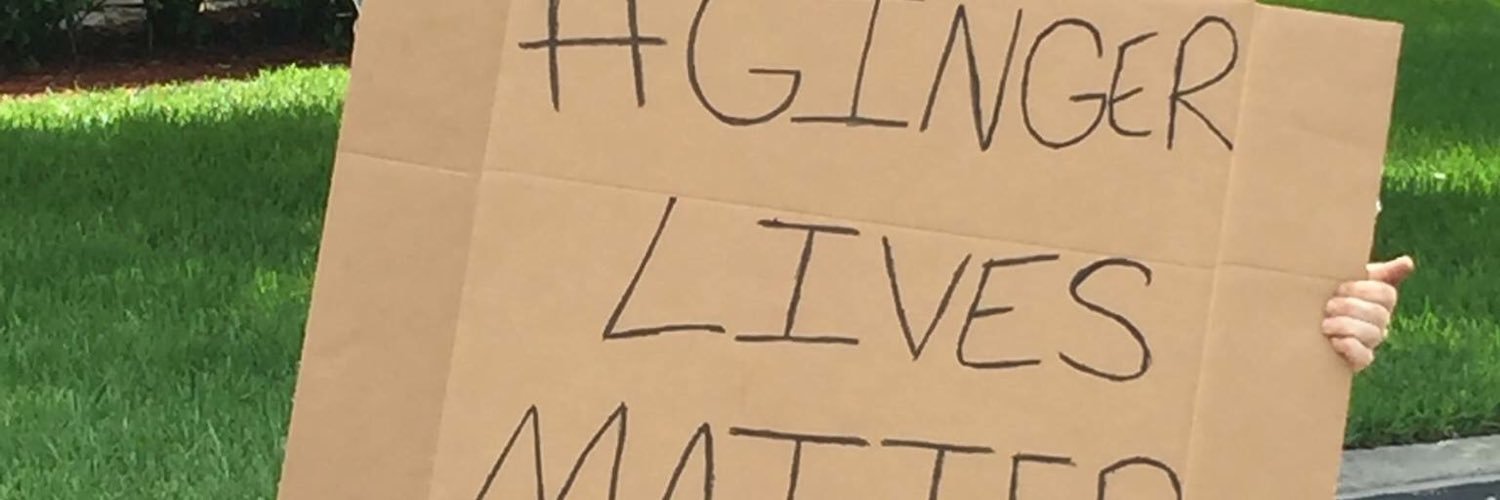 #GINGER
LIVES
MATTER